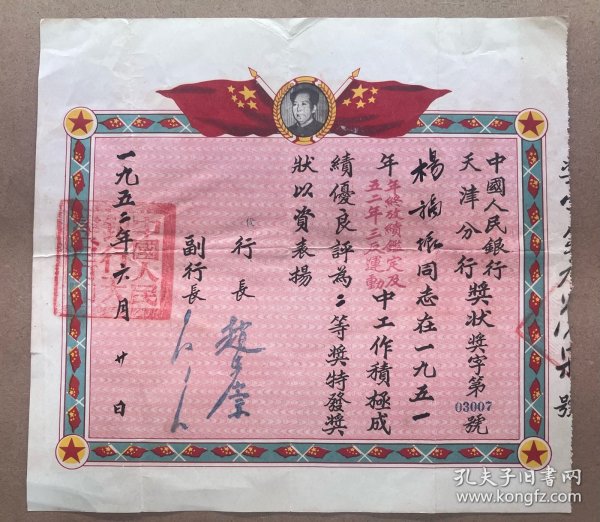 中國人民銀行
天津分行獎狀獎字第03007號
楊福振同志在一九五一
年年終政績鑑定及五二年三反運動中工作積極成
績優良評為二等獎特發獎
狀以資表揚
代行長
副行長
一九五二年六月廿日
號
孔夫子旧书网
www.kongfz.com